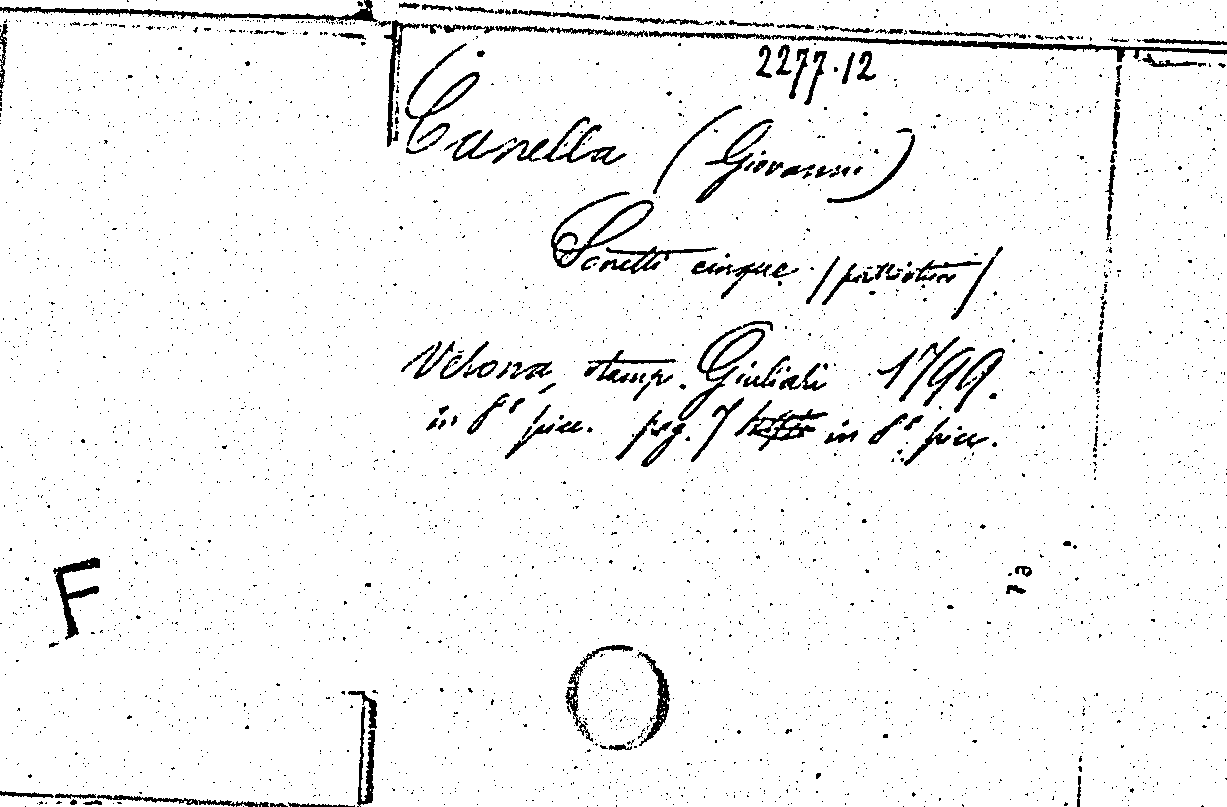 2277.12
Canella (Giovanni)
Sonetti cinque (patriotici)
Verona, stamp. Giuliari 1799.
in 8° picc. pag. 7 in 8° picc.
F